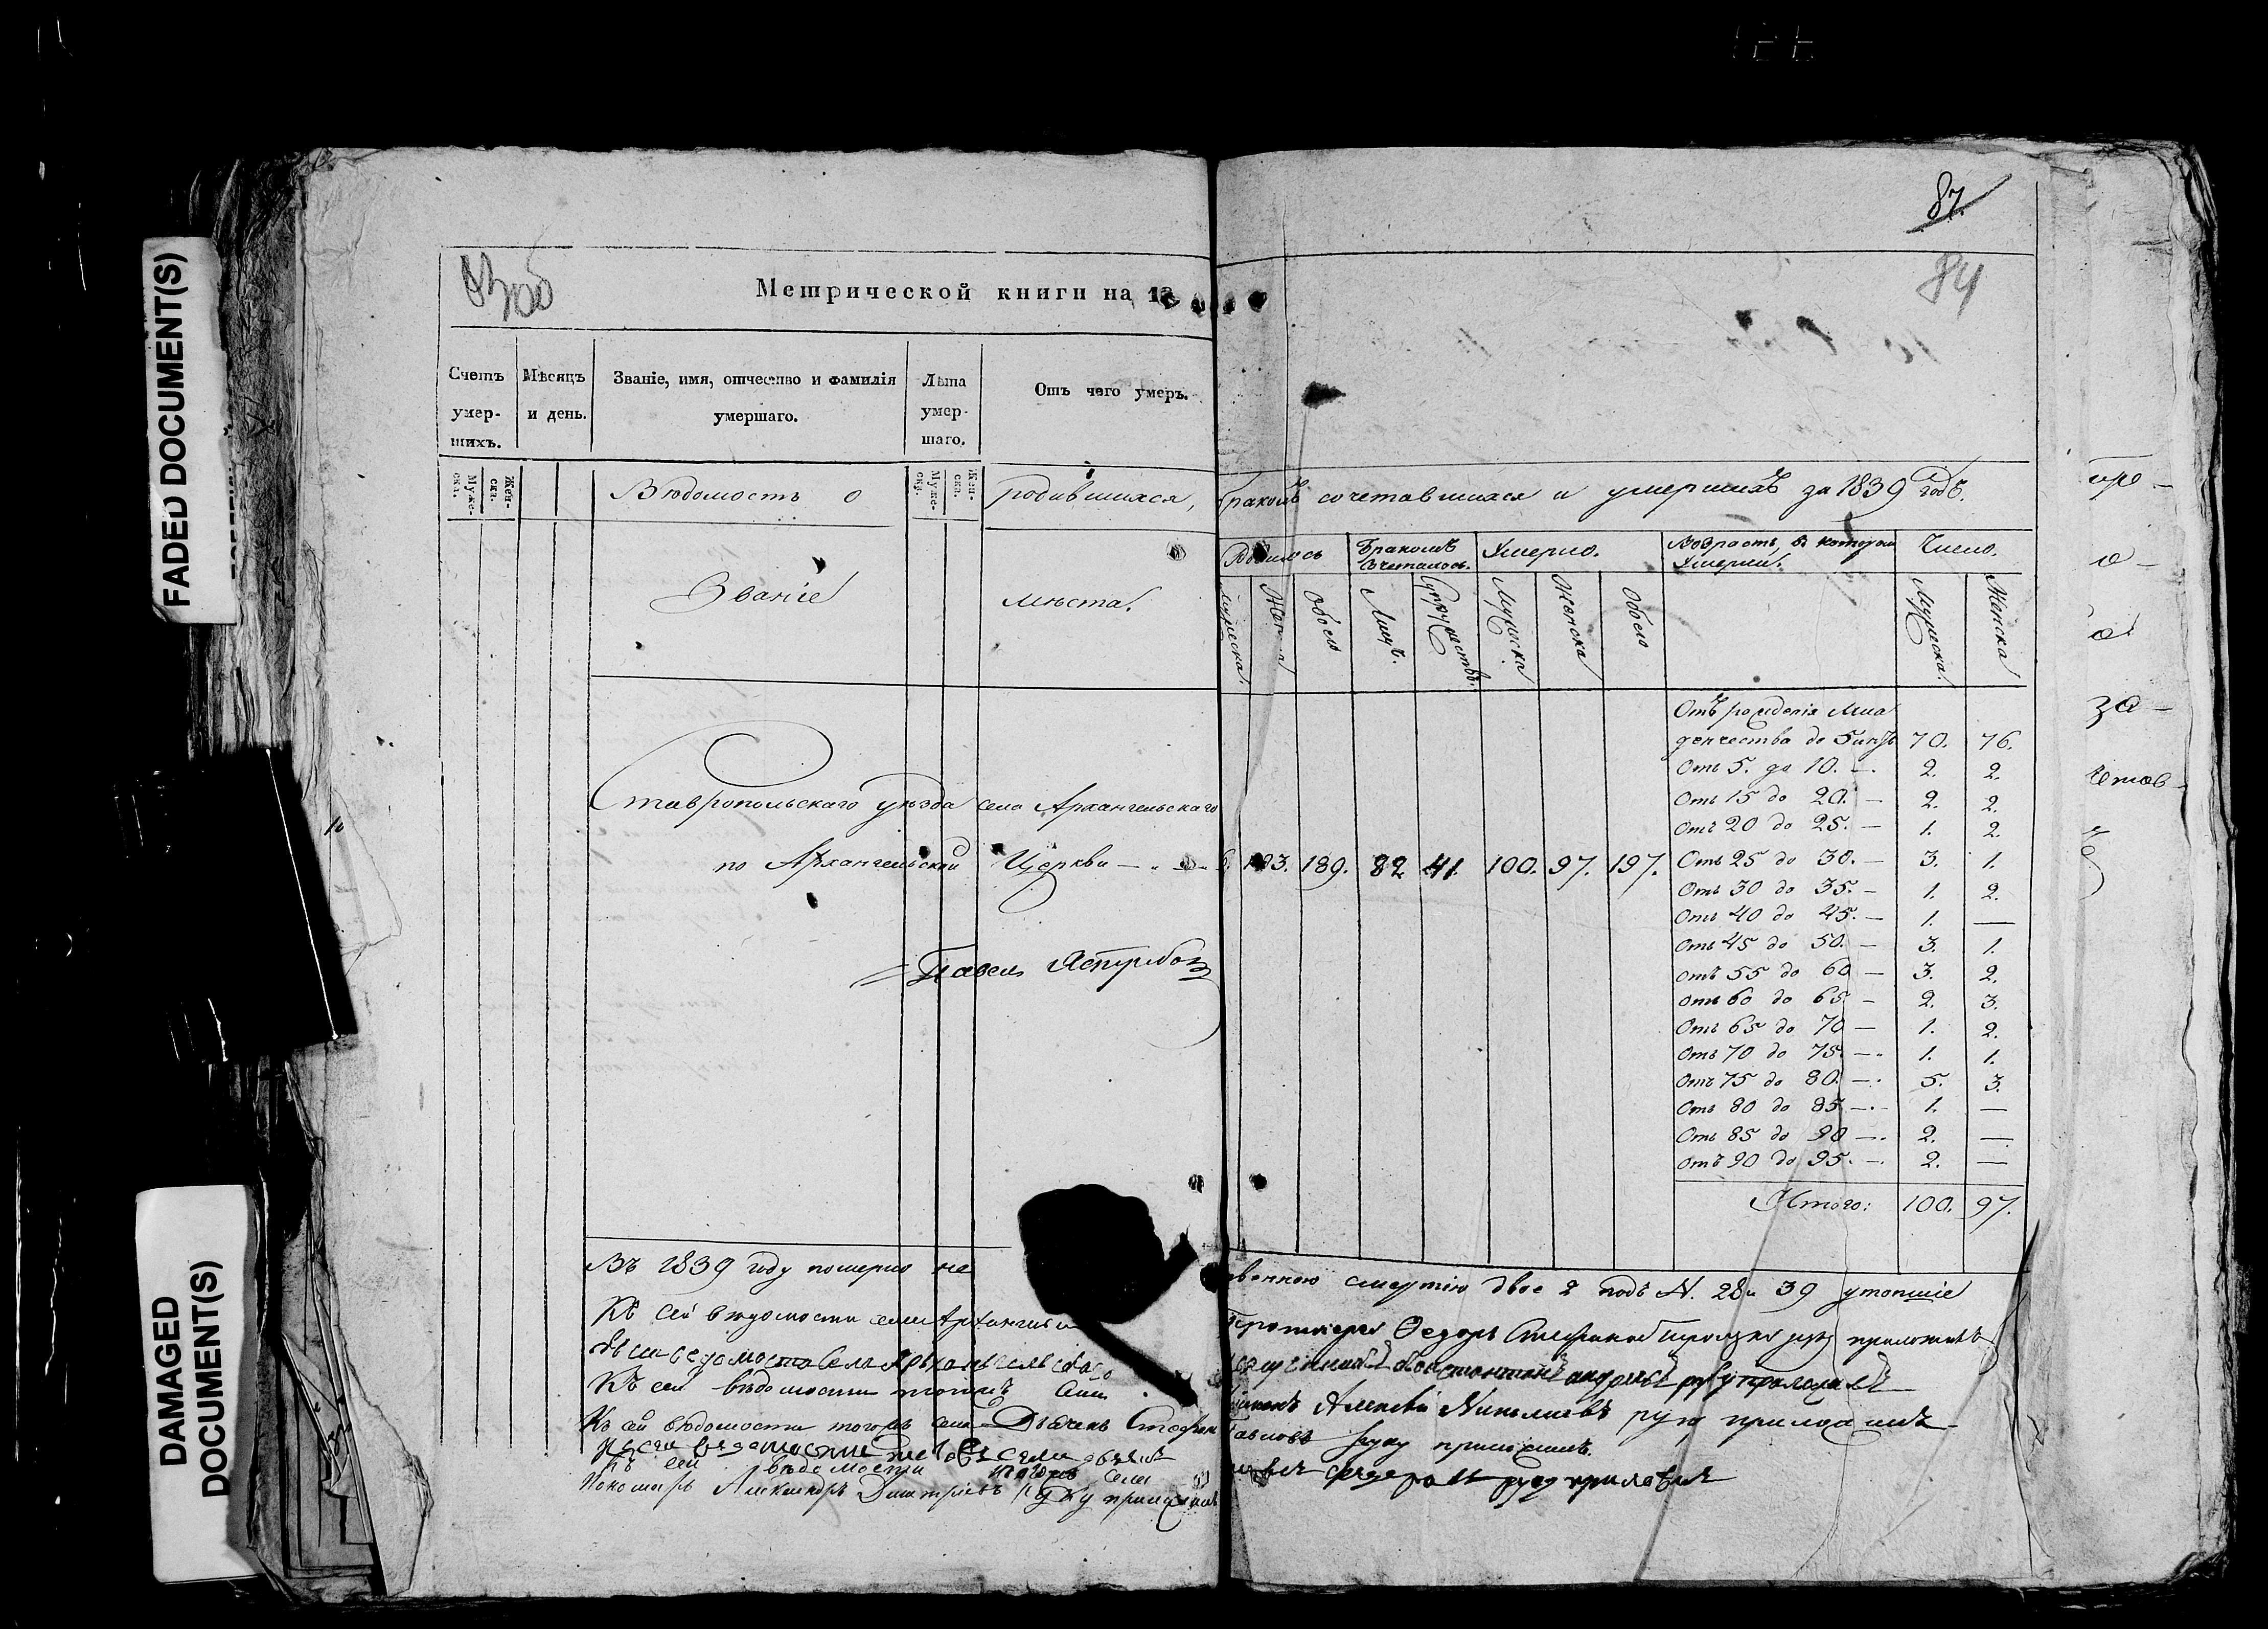 FADED DOCUMENT(S)
DAMAGED DOCUMENT(S)
87.
84
Метрической книги на 18
Счетъ умер-шихъ.
Мѣсяцъ и день.
Званіе, имя, отчество и Фамилія умершаго.
Лѣта умер-шаго.
Отъ чего умеръ.
Муже-ска. Жен-ска.
Муже-ска. Жен-ска.
Вѣдомость о родившихся, бракомъ сочетавшихся и умершихъ за 1839 годъ.
Званіе мѣста.
Родилось
Бракомъ сочеталось.
Умерло.
Возрастъ, въ которомъ Умерли.
Число.
Мужеска. Женска Обоего Лицъ. Супружествъ. Мужеска Женска Обоего Мужеска. Женска
Отъ рожденія Мла
денчества до 5 лѣтъ 70. 76.
Отъ 5. до 10. — 2. 2.
Отъ 15 до 20. — 2. 2.
Отъ 20 до 25. — 1. 2.
Отъ 25 до 30. — 3. 1.
Отъ 30 до 35. — 1. 2.
Отъ 40 до 45. — 1. —
Отъ 45 до 50. — 3. 1.
Отъ 55 до 60 — 3. 2.
Отъ 60 до 65 — 2. 3.
Отъ 65 до 70 — 1. 2.
Отъ 70 до 75. — 1. 1.
Отъ 75 до 80. — 5. 3.
Отъ 80 до 85 — 1. —
Отъ 85 до 90 — 2. —
Отъ 90 до 95. — 2. —
Итого: 100. 97.
Ставропольскаго уѣзда села Архангельскаго
по Архангельской Церкви — 6. 103. 189. 82 41. 100. 97. 197.
Павелъ Ястребовъ
Въ 1839 году померло не ственною смертію двое 2 подъ N. 28 и 39 утопшіе
Къ сей вѣдомости села Протоіерей Ѳедоръ руку приложилъ
Къ сей вѣдомости села Архангельскаго Константинъ Андреевъ руку приложилъ
Къ сей вѣдомости тогожъ села Алексѣй Николаевъ руку приложилъ
Къ сей вѣдомости тогожъ села Дьячекъ Стефанъ Павловъ руку приложилъ.
Къ сей вѣдомости руку приложилъ
Къ сей вѣдомости тогожъ села
Пономарь Александръ Дмитріевъ руку приложилъ